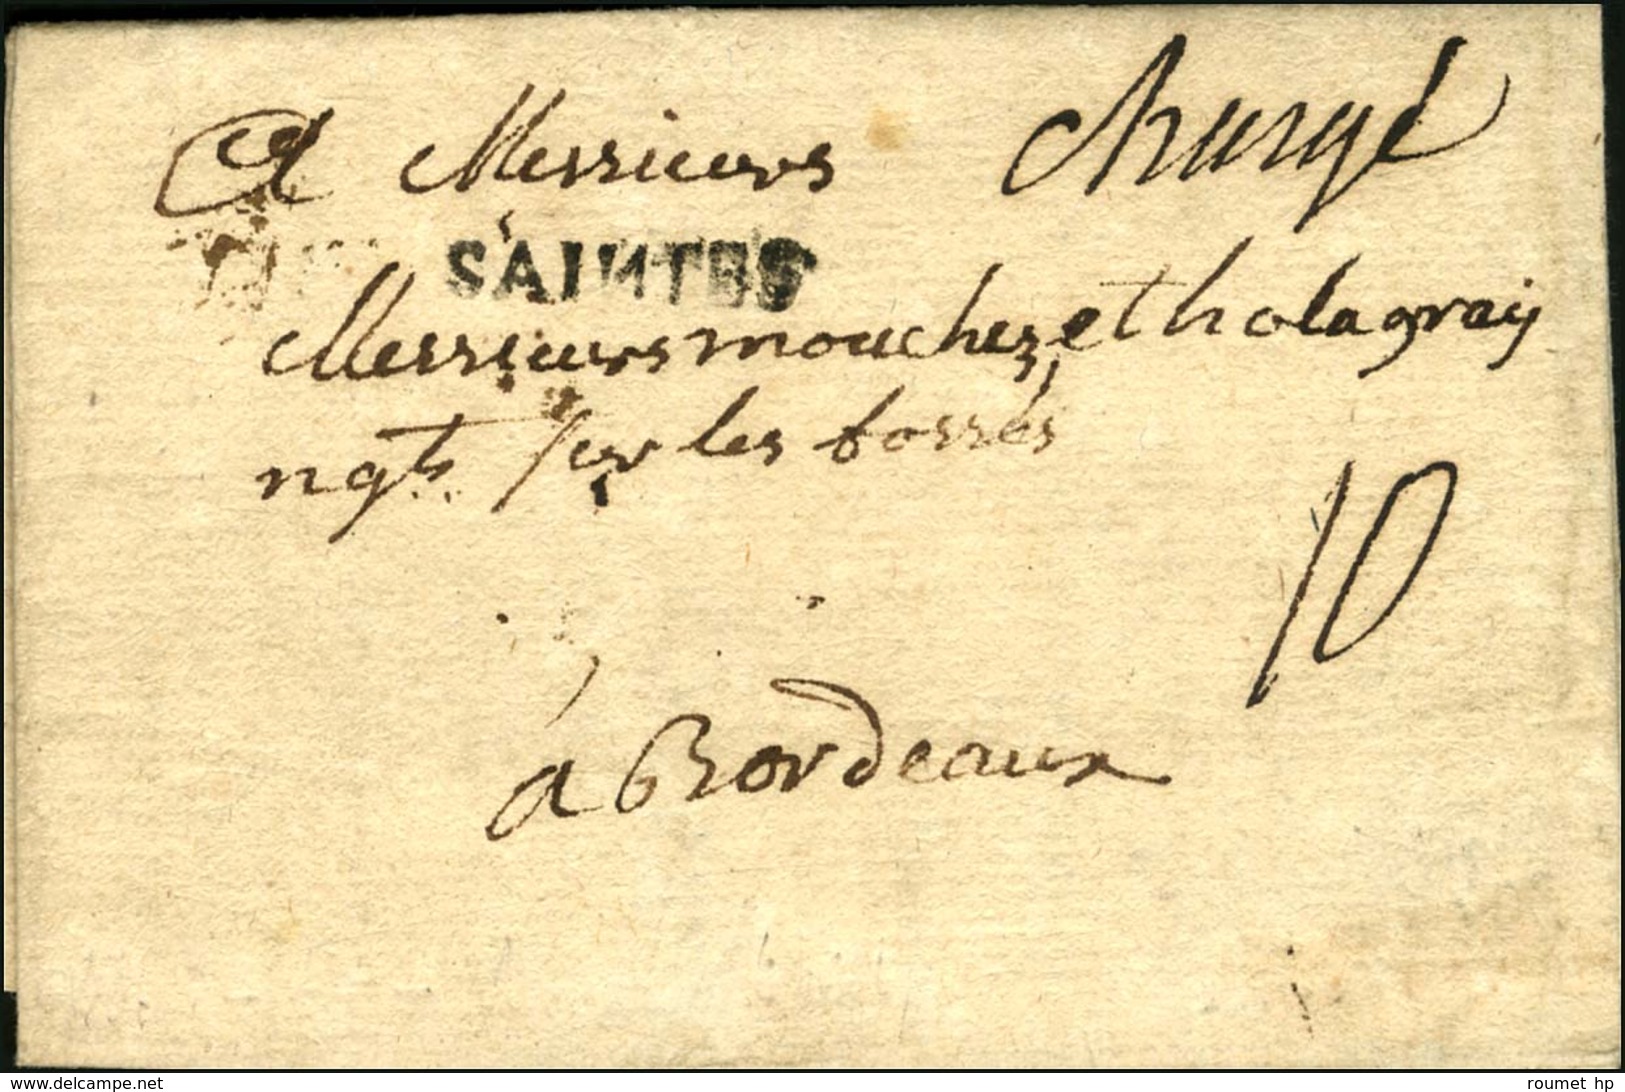 A Messieurs chargé
SAINTES
Messieurs mouchez, et holagray
ngts sur les fossés
10
à Bordeaux
www.delcampe.net
roumet hp